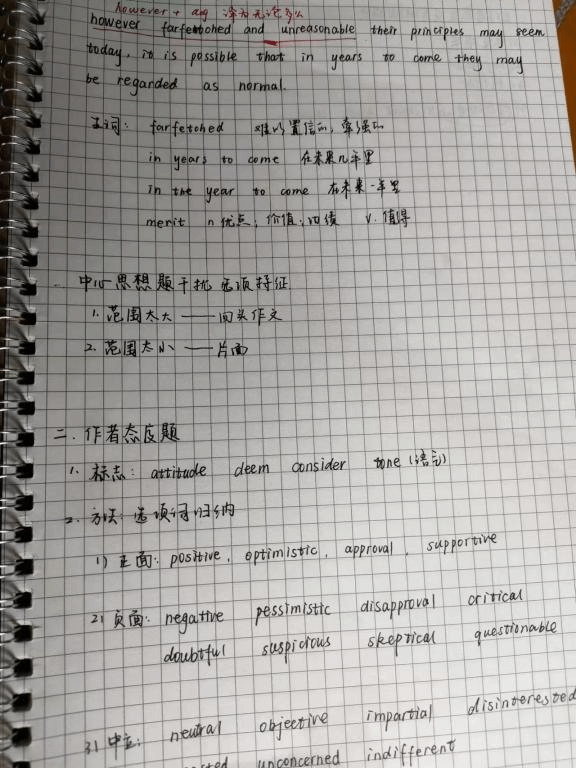 however + adj 译为无论多么
however farfetched and unreasonable their principles may seem
today, it is possible that in years to come they may
be regarded as normal.
生词: farfetched 难以置信的, 牵强的
in years to come 在未来几年里
in the year to come 在未来一年里
merit n 优点; 价值; 功绩 v. 值得
中心思想题干扰选项特征
1. 范围太大 —— 回头作文
2. 范围太小 —— 片面
二. 作者态度题
1. 标志: attitude deem consider tone (语气)
2. 方法: 选项词归纳
1) 正面: positive, optimistic, approval, supportive
2) 负面: negative pessimistic disapproval critical
doubtful suspicious skeptical questionable
3) 中立: neutral objective impartial disinterested
unconcerned indifferent